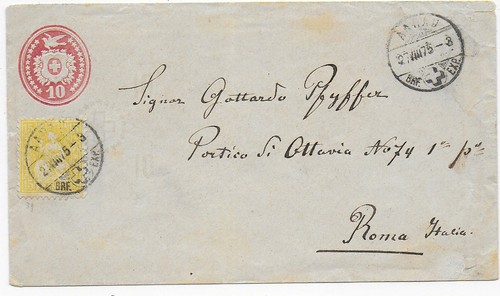 10
AARAU
2.VIII.75-3
BRF. EXP.
AARAU
2.VIII.75-3
BRF. EXP.
Signor Gottardo Pfyffer
Portico di Ottavia No 74 1º pº
Roma Italia.